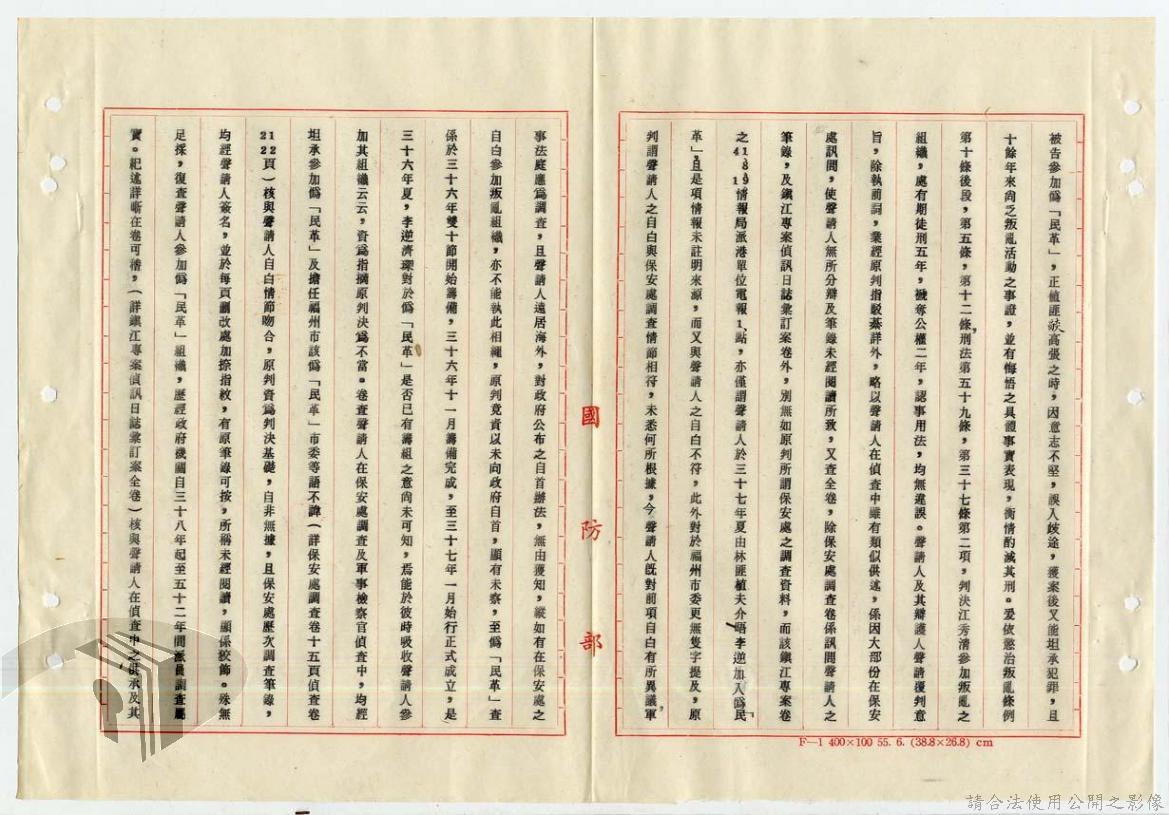 被告參加偽「民革」，正値匪燄高張之時，因意志不堅，誤入歧途，獲案後又能坦承犯罪，且
十餘年來尚乏叛亂活動之事證，並有悔悟之具體事實表現，衡情酌減其刑。爰依懲治叛亂條例
第十條後段，第五條，第十二條，刑法第五十九條，第三十七條第二項，判決江秀清參加叛亂之
組織，處有期徒刑五年，褫奪公權二年，認事用法，均無違誤。聲請人及其辯護人聲請覆判意
旨，除執前詞，業經原判指駁綦詳外，略以聲請人在偵查中雖有類似供述，係因大部份在保安
處訊問，使聲請人無所分辯及筆錄未經閱讀所致，又查全卷，除保安處調查卷係訊問聲請人之
筆錄，及鎮江專案偵訊日誌彙訂案卷外，別無如原判所謂保安處之調查資料，而該鎮江專案卷
之4189 1情報局派港單位電報1、點，亦僅謂聲請人於三十七年夏由林匪植夫介晤李逆加入偽「民
革」，且是項情報未註明來源，而又與聲請人之自白不符，此外對於福州市委更無隻字提及，原
判謂聲請人之自白與保安處調查情節相符，未悉何所根據，今聲請人既對前項自白有所異議，軍
事法庭應為調查，且聲請人遠居海外，對政府公布之自首辦法，無由獲知，縱如有在保安處之
自白參加叛亂組織，亦不能執此相繩，原判竟資以未向政府自首，顯有未察，至偽「民革」查
係於三十六年雙十節開始籌備，三十六年十一月籌備完成，至三十七年一月始行正式成立，是
三十六年夏，李逆濟琛對於偽「民革」是否已有籌組之意尚未可知，焉能於彼時吸收聲請人參
加其組織云云，資為指摘原判決為不當。卷查聲請人在保安處調查及軍事檢察官偵查中，均經
坦承參加偽「民革」及擔任福州市該偽「民革」市委等語不諱（詳保安處調查卷十五頁偵查卷
21 22頁）核與聲請人自白情節吻合，原判資為判決基礎，自非無據，且保安處歷次調查筆錄，
均經聲請人簽名，並於每頁刪改處加捺指紋，有原筆錄可按，所稱未經閱讀，顯係狡飾。殊無
足採，復查聲請人參加偽「民革」組織，歷經政府機關自三十八年起至五十二年間派員調查屬
實。紀述詳晰在卷可稽，（詳鎮江專案偵訊日誌彙訂案全卷）核與聲請人在偵查中之供承及其
國防部
F—1 400×100 55. 6. (38.8×26.8) cm
請合法使用公開之影像